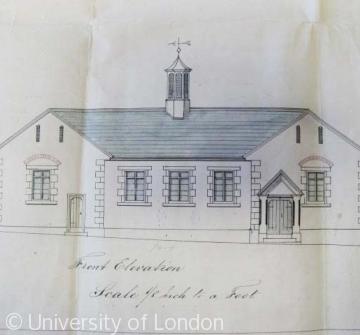 Front Elevation
Scale ⅛ inch to a Foot
© University of London